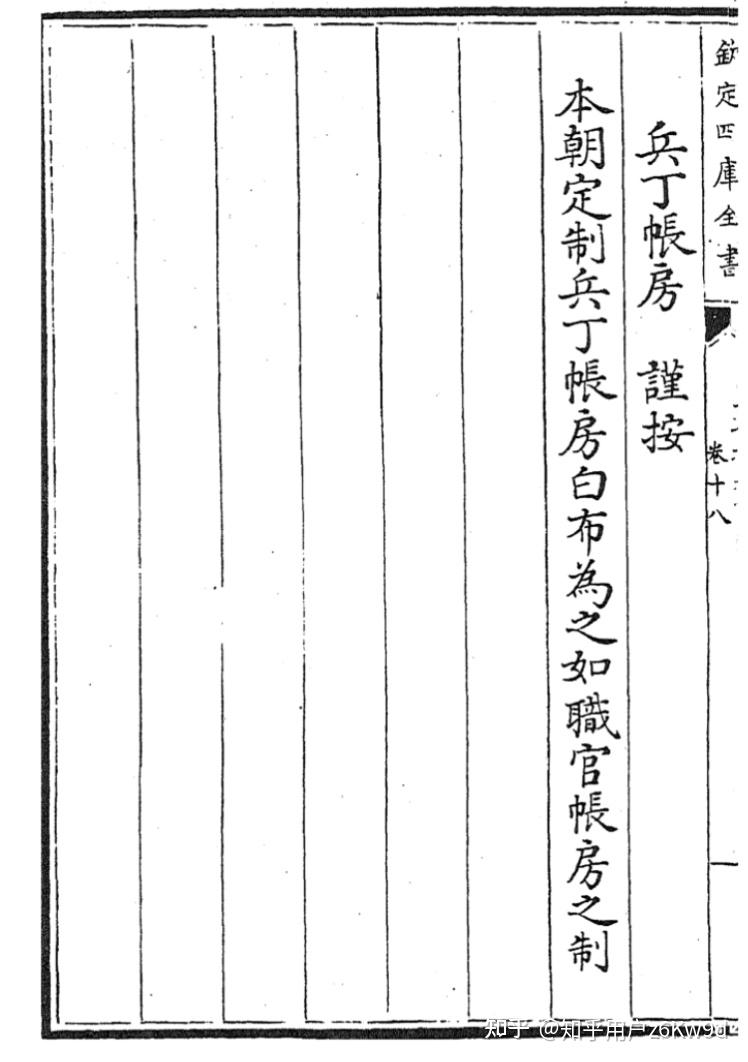 欽定四庫全書
卷十八
兵丁帳房　謹按
本朝定制兵丁帳房白布為之如職官帳房之制
知乎 @知乎用户z6Kw9d